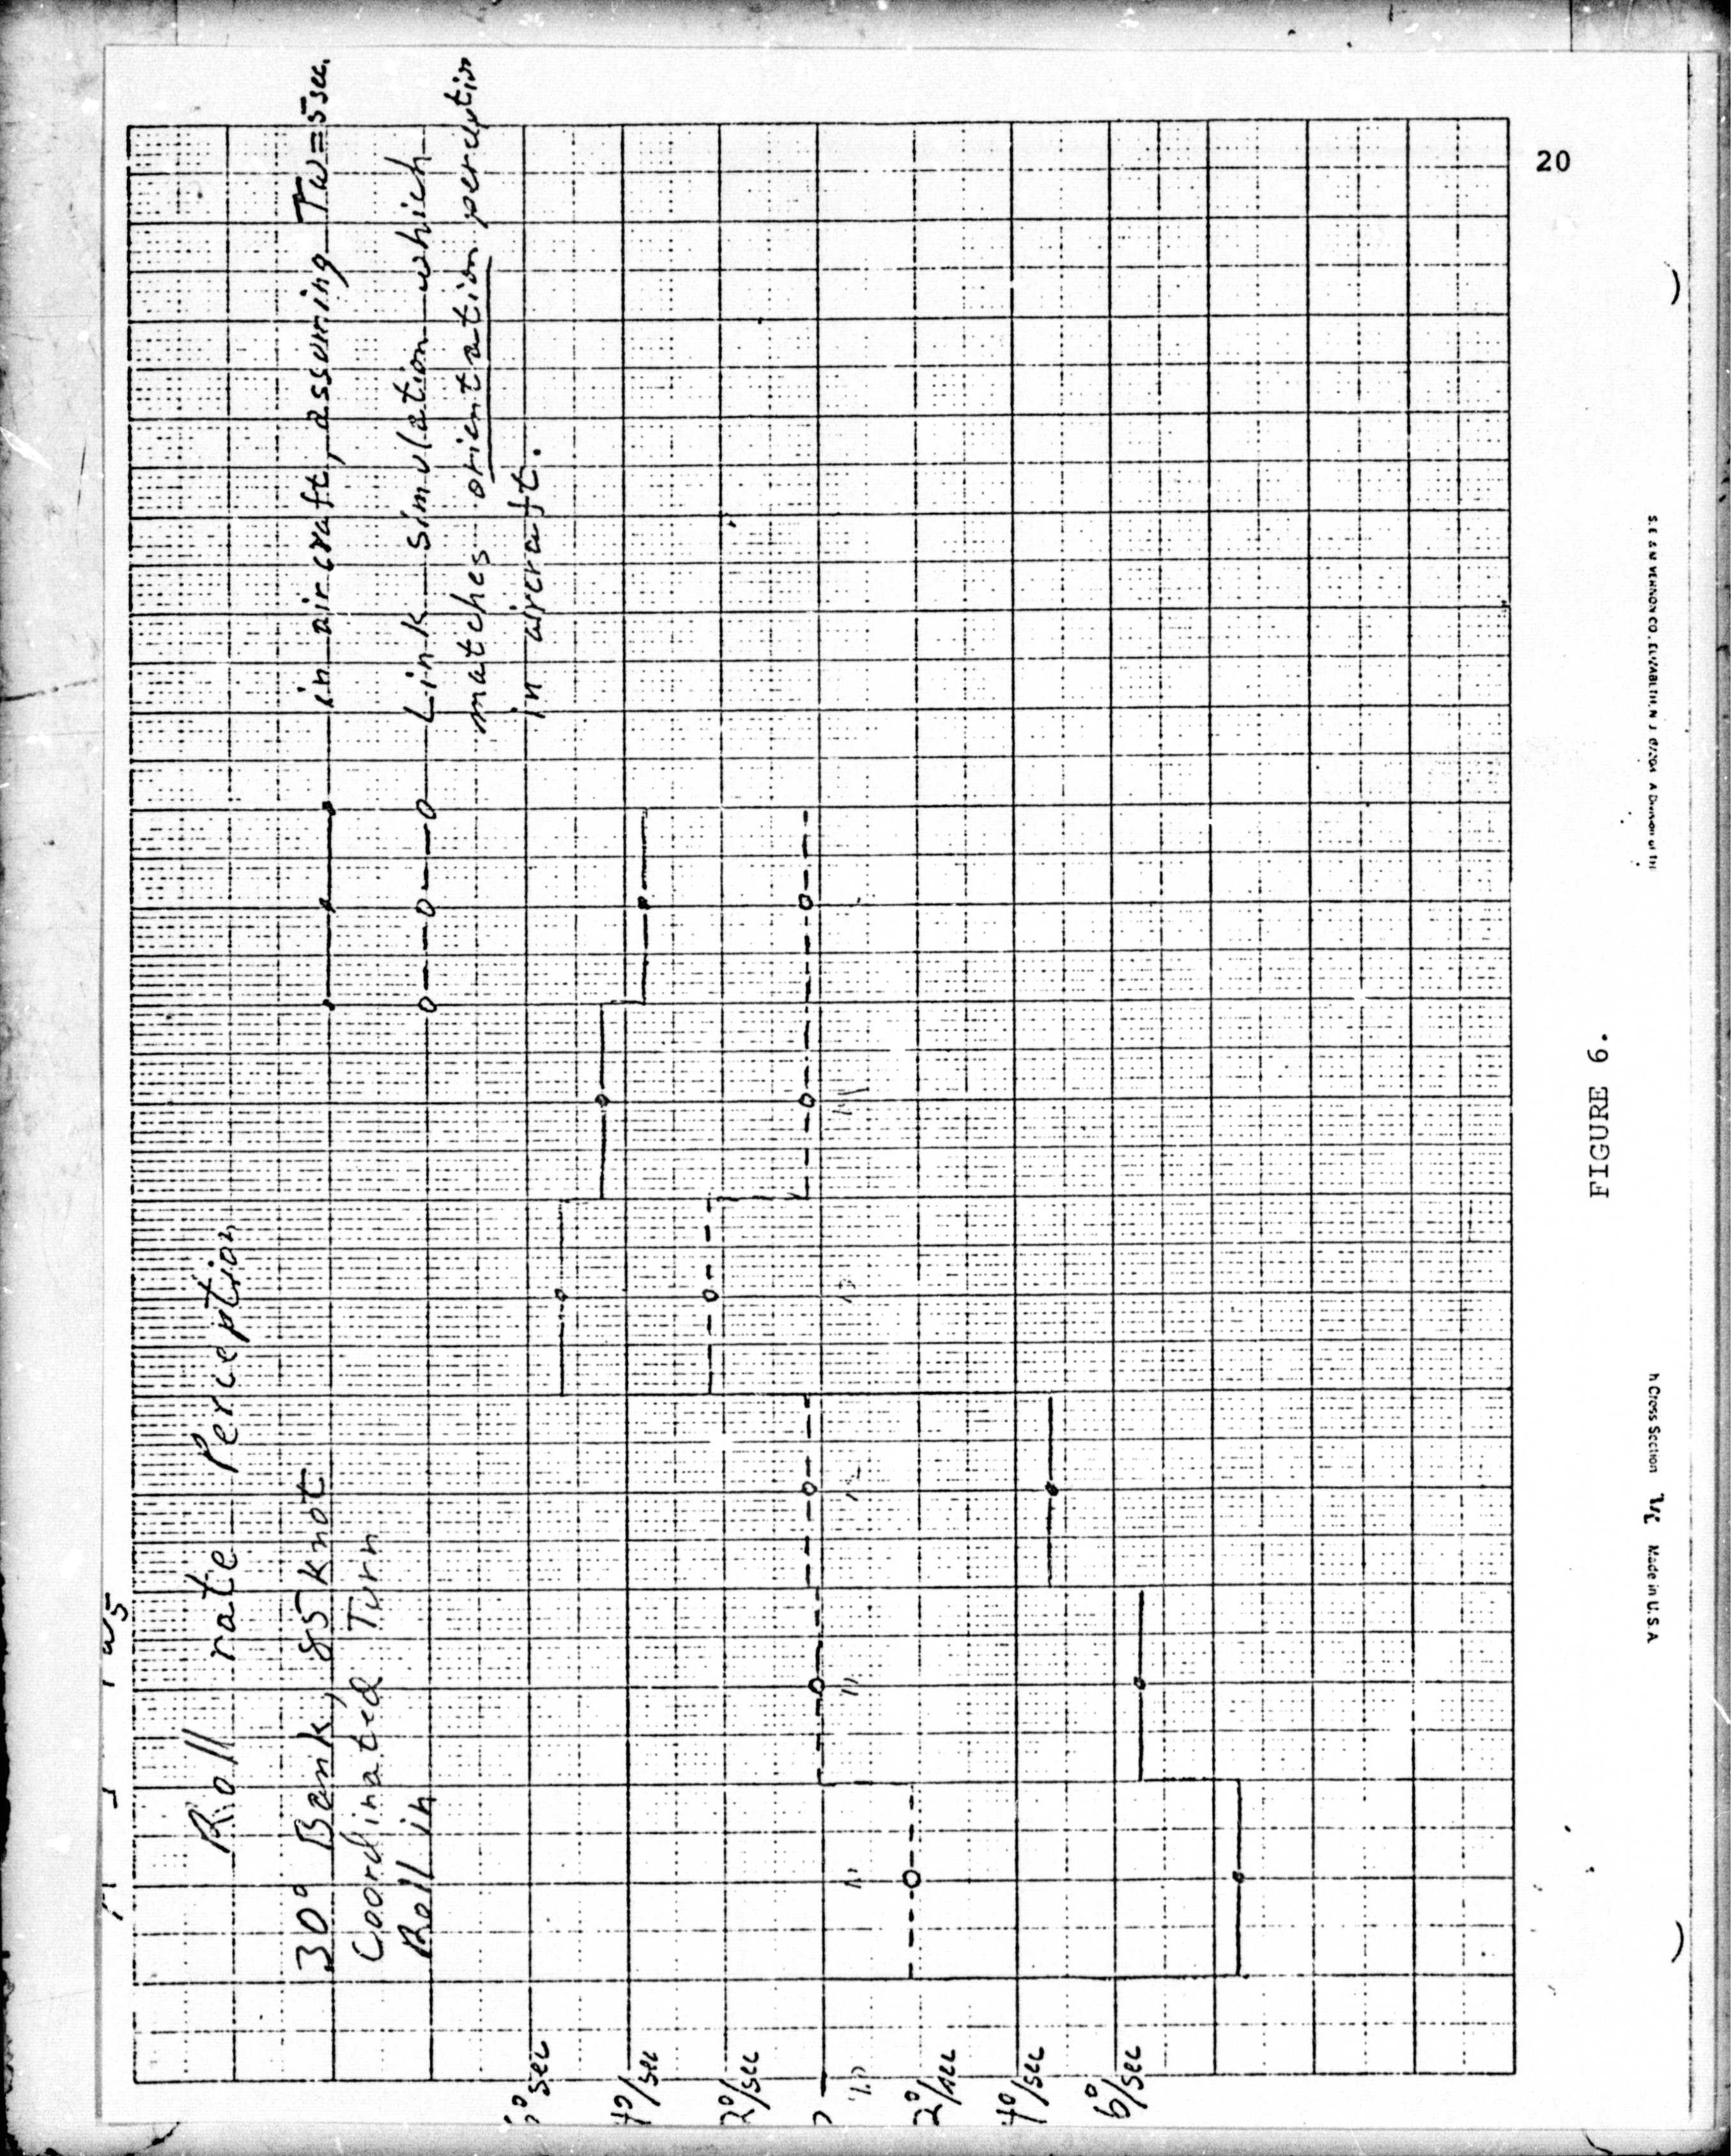 Roll rate Perception
30° Bank, 85 knot
Coordinated Turn
Roll in
in aircraft, assuming Tω=5sec.
Link simulation which
matches orientation perception
in aircraft.
4°/sec
2°/sec
2°/sec
4°/sec
6°/sec
FIGURE 6.
20
Cross Section
Made in U.S.A.